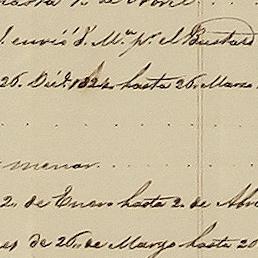 envió S. M. pr. el Bustard
26. Dic. 1824 hasta 26. Marzo
menor
2. de Enero hasta 2. de Abr
es de 26. de Marzo hasta 20